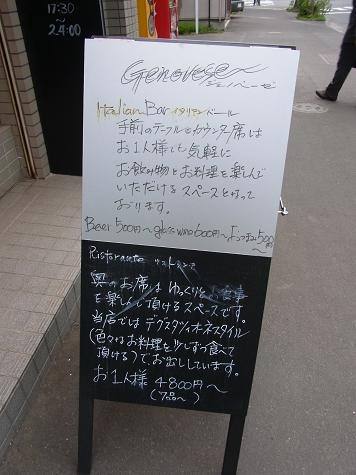 17:30
～
24:00
Genovese～
ジェノベーゼ
Italian Bar イタリアンバール
手前のテーブルとカウンター席は
お1人様でも気軽に
お飲み物とお料理を楽しんで
いただけるスペースとなって
おります。
Beer 500円～ glass wine 600円～ 500円
～
Ristorante リストランテ
奥のお席はゆっくりとお食事
を楽しんで頂けるスペースです。
当店ではデグスタツィオーネスタイル
(色々なお料理を少しずつ食べて
頂ける)でお出ししています。
お1人様 4800円～
(7品～)